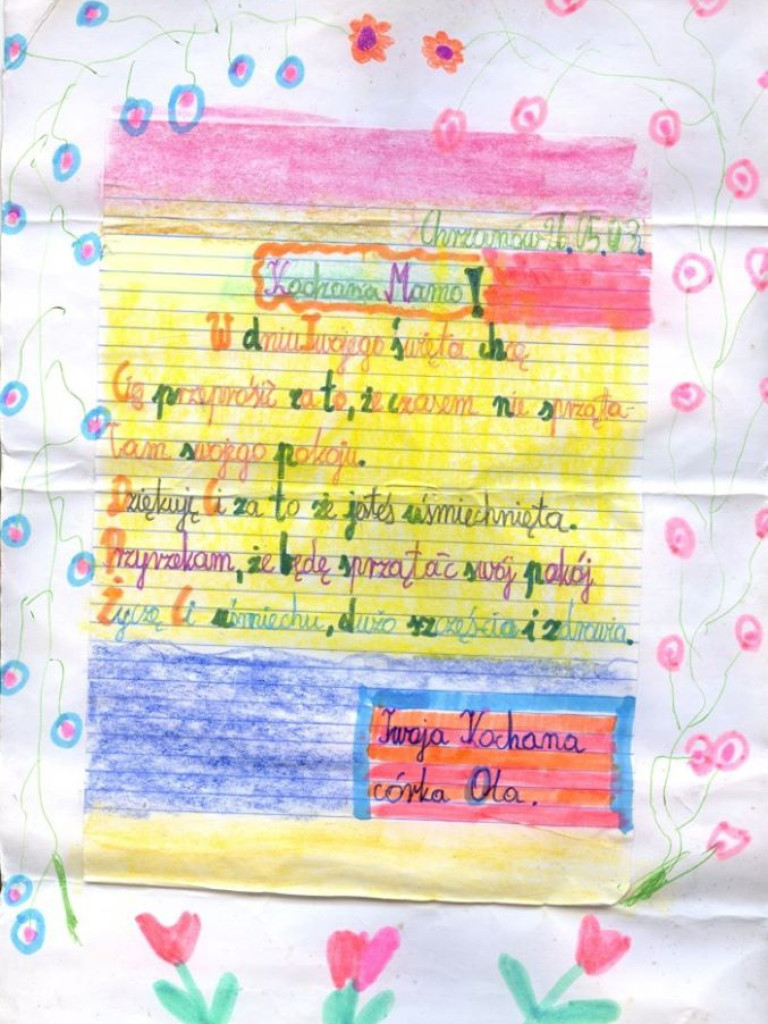 Chrzanów 26.05.03.
Kochana Mamo!
W dniu Twojego święta chcę
Cię przeprosić za to, że czasem nie sprząta-
łam swojego pokoju.
Dziękuję Ci za to że jesteś uśmiechnięta.
Przyrzekam, że będę sprzątać swój pokój
Życzę Ci uśmiechu, dużo szczęścia i zdrowia.
Twoja Kochana
córka Ola.